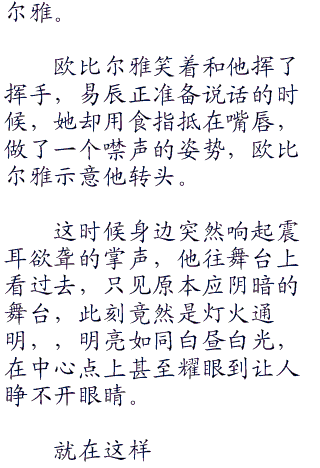 尔雅。
欧比尔雅笑着和他挥了
挥手，易辰正准备说话的时
候，她却用食指抵在嘴唇，
做了一个噤声的姿势，欧比
尔雅示意他转头。
这时候身边突然响起震
耳欲聋的掌声，他往舞台上
看过去，只见原本应阴暗的
舞台，此刻竟然是灯火通
明，，明亮如同白昼白光，
在中心点上甚至耀眼到让人
睁不开眼睛。
就在这样